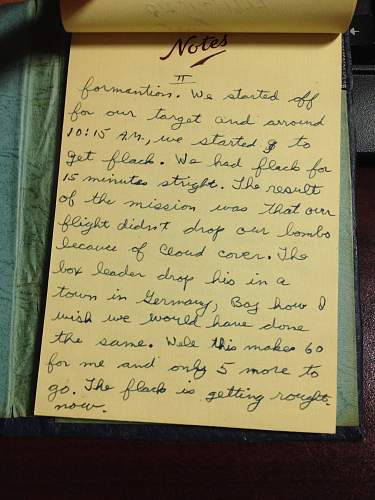 Notes
II
formantion. We started off
for our target and arround
10:15 AM., we started to
get flack. We had flack for
15 minutes stright. The result
of the mission was that our
flight didnot drop our bombs
because of cloud cover. The
box leader drop his in a
town in Germany, Boy how I
wish we would have done
the same. Wele this makes 60
for me and only 5 more to
go. The flack is getting rought
now.